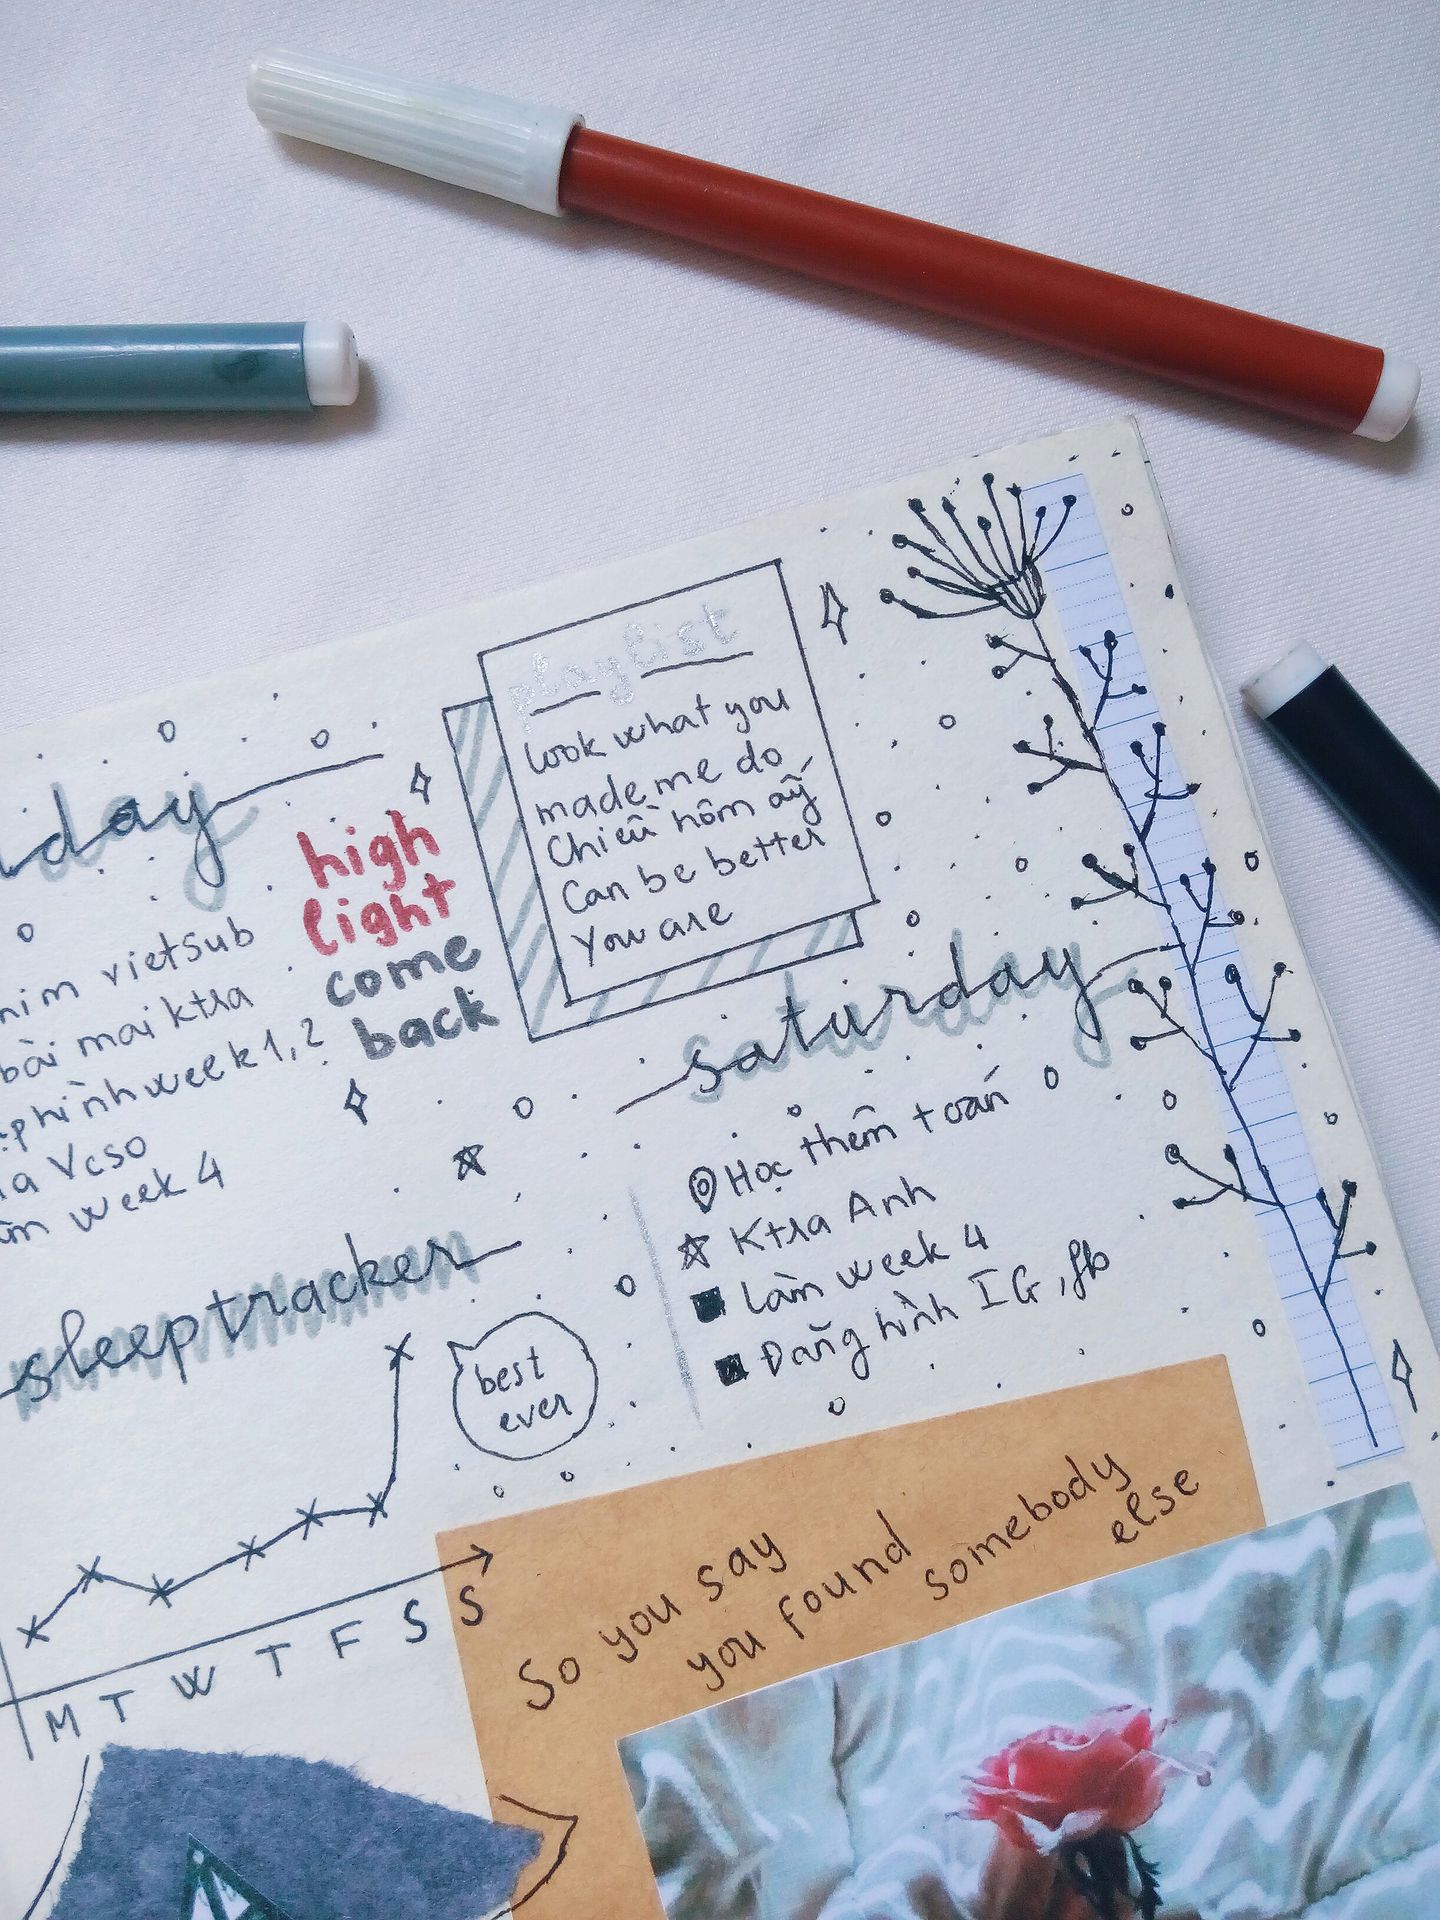 day
vietsub
bài mai ktra
hình week 1, 2
Vcso
week 4
high
light
come
back
playlist
look what you
made me do
Chiều hôm ấy
Can be better
You are
saturday
Học thêm toán
Ktra Anh
Làm week 4
Đăng hình IG, fb
sleeptracker
best
ever
M T W T F S S
So you say
you found
somebody
else